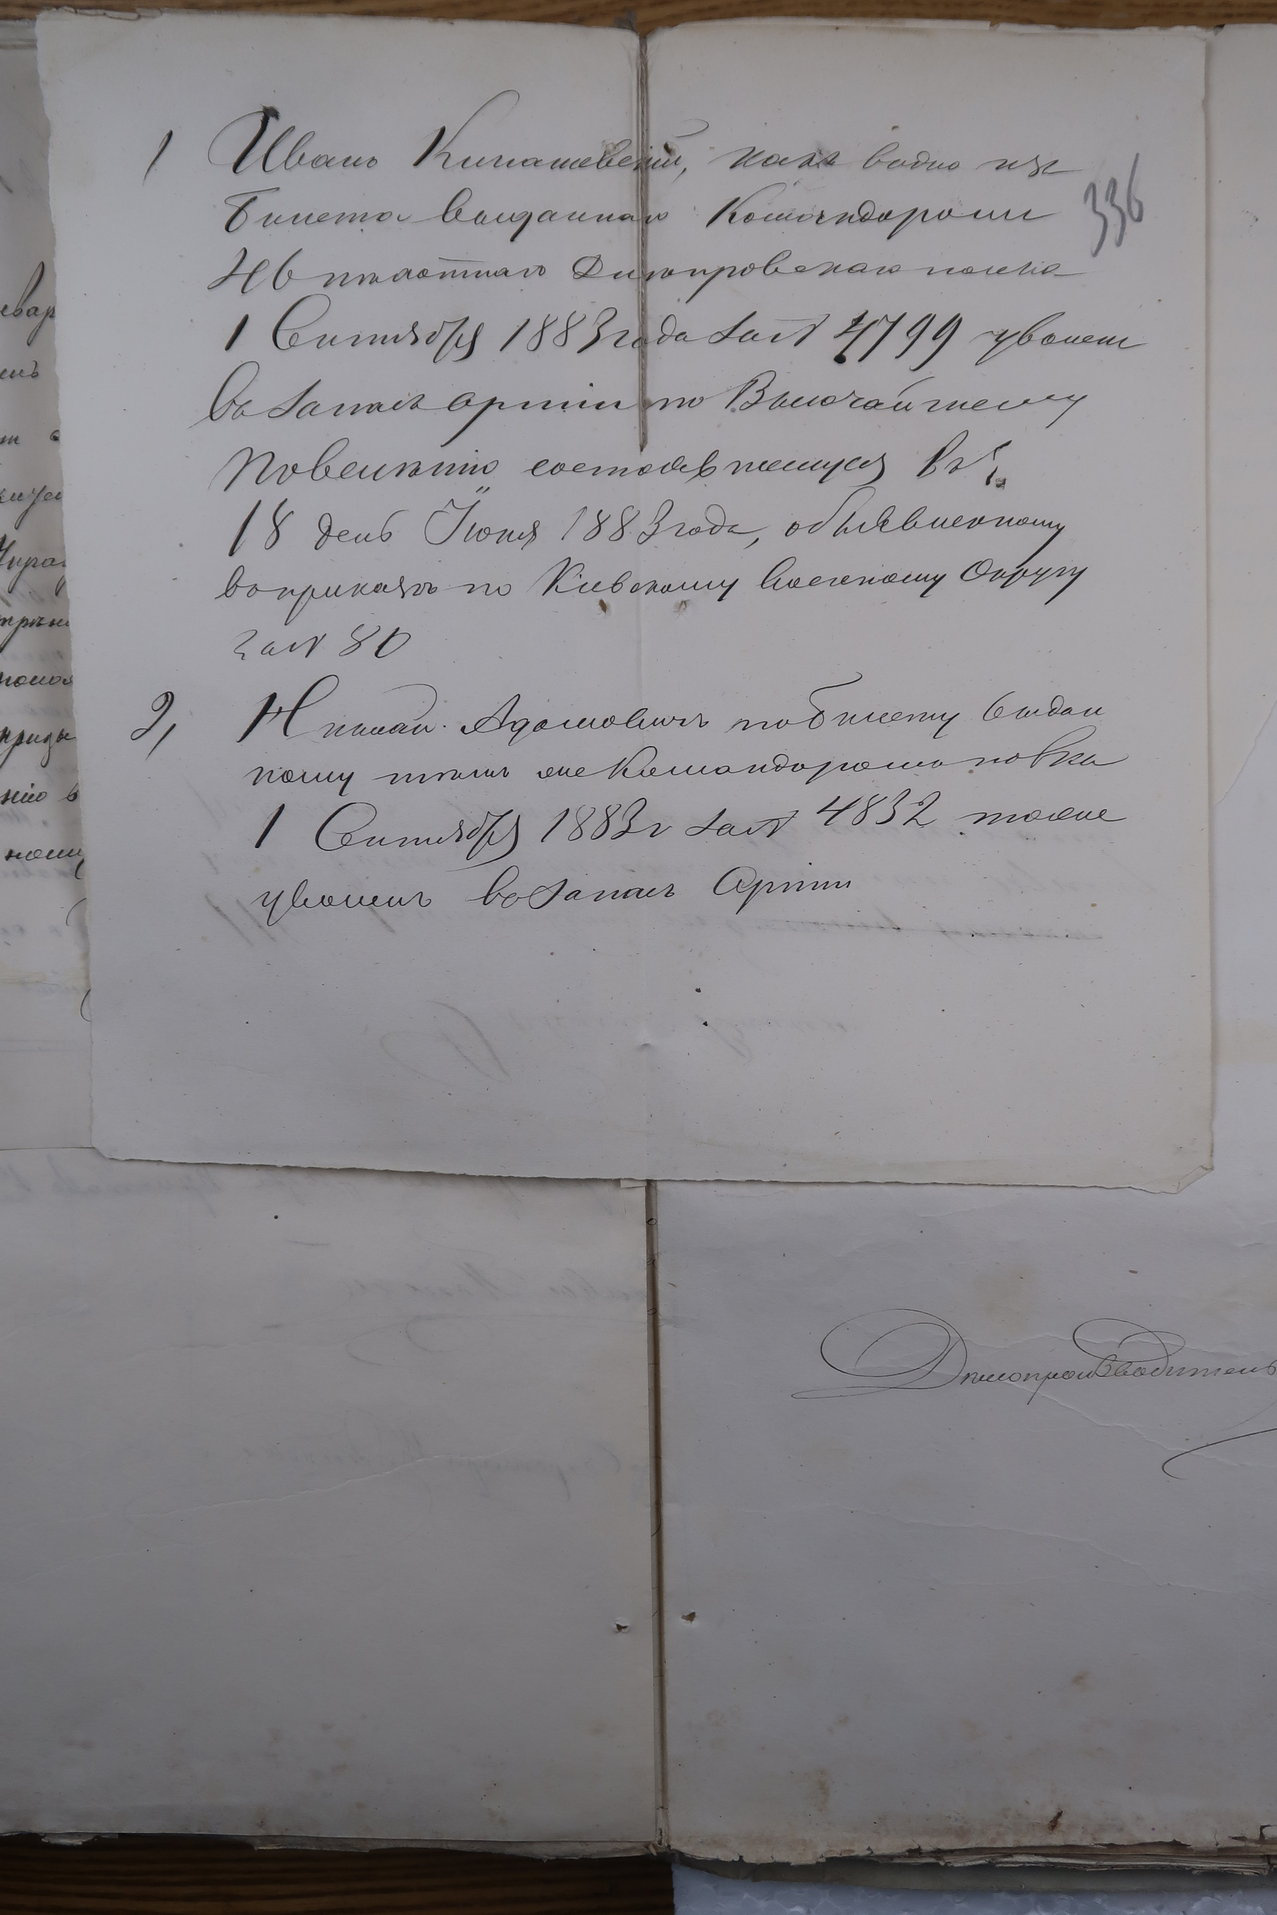 1 Иванъ Кинашевскій, какъ видно изъ
336
билета выданнаго Командиромъ
46 пехотнаго Днепровскаго полка
1 Сентября 1883 года за № 4799 уволенъ
въ запасъ арміи по Высочайшему
повеленію состоявшемуся въ
18 день Іюня 1883 года, объявленному
въ приказе по Кіевскому Военному Округу
за № 80
2, Николай Адамовичъ по билету выдан
ному темъ же Командиромъ полка
1 Сентября 1883 г за № 4832 также
уволенъ въ запасъ Арміи
Делопроизводитель